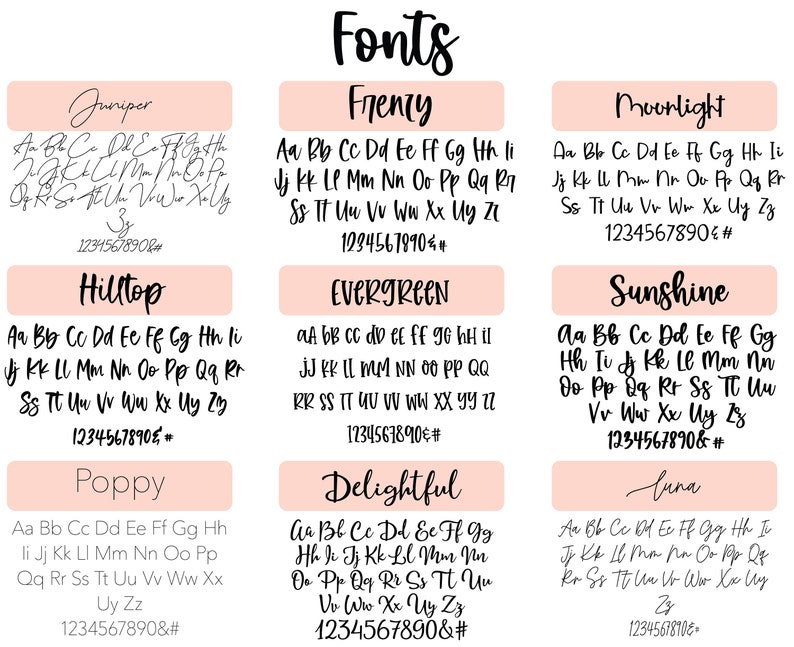 Fonts
Juniper
Aa Bb Cc Dd Ee Ff Gg Hh
Ii Jj Kk Ll Mm Nn Oo Pp
Qq Rr Ss Tt Uu Vv Ww Xx Uy
Zz
1234567890&#
Frenzy
Aa Bb Cc Dd Ee Ff Gg Hh Ii
Jj Kk Ll Mm Nn Oo Pp Qq Rr
Ss Tt Uu Vv Ww Xx Uy Zz
1234567890&#
Moonlight
Aa Bb Cc Dd Ee Ff Gg Hh Ii
Jj Kk Ll Mm Nn Oo Pp Qq Rr
Ss Tt Uu Vv Ww Xx Uy Zz
1234567890&#
Hilltop
Aa Bb Cc Dd Ee Ff Gg Hh Ii
Jj Kk Ll Mm Nn Oo Pp Qq Rr
Ss Tt Uu Vv Ww Xx Uy Zz
1234567890&#
EVERGREEN
aA bB cC dD eE fF gG hH iI
jJ kK lL mM nN oO pP QQ
RR sS tT uU vV wW xX yY zZ
1234567890&#
Sunshine
Aa Bb Cc Dd Ee Ff Gg
Hh Ii Jj Kk Ll Mm Nn
Oo Pp Qq Rr Ss Tt Uu
Vv Ww Xx Uy Zz
1234567890&#
Poppy
Aa Bb Cc Dd Ee Ff Gg Hh
Ii Jj Kk Ll Mm Nn Oo Pp
Qq Rr Ss Tt Uu Vv Ww Xx
Uy Zz
1234567890&#
Delightful
Aa Bb Cc Dd Ee Ff Gg
Hh Ii Jj Kk Ll Mm Nn
Oo Pp Qq Rr Ss Tt Uu
Vv Ww Xx Uy Zz
1234567890&#
Luna
Aa Bb Cc Dd Ee Ff Gg Hh Ii
Jj Kk Ll Mm Nn Oo Pp Qq
Rr Ss Tt Uu Vv Ww Xx Uy
Zz
1234567890&#